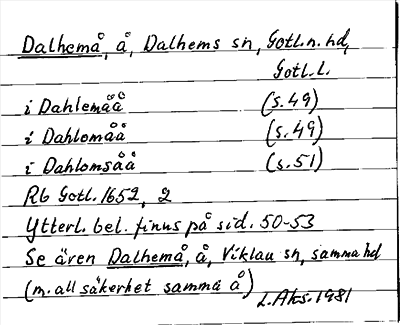 Dalhemå, å, Dalhems sn, Gotl.n. hd,
Gotl.l.
i Dahlemåå (s.49)
i Dahlomåå (s.49)
i Dahlomsåå (s.51)
Rb Gotl. 1652, 2
Ytterl. bel. finns på sid. 50-53
Se även Dalhemå, å, Viklau sn, samma hd
(m. all säkerhet samma å)
L.Aks. 1981